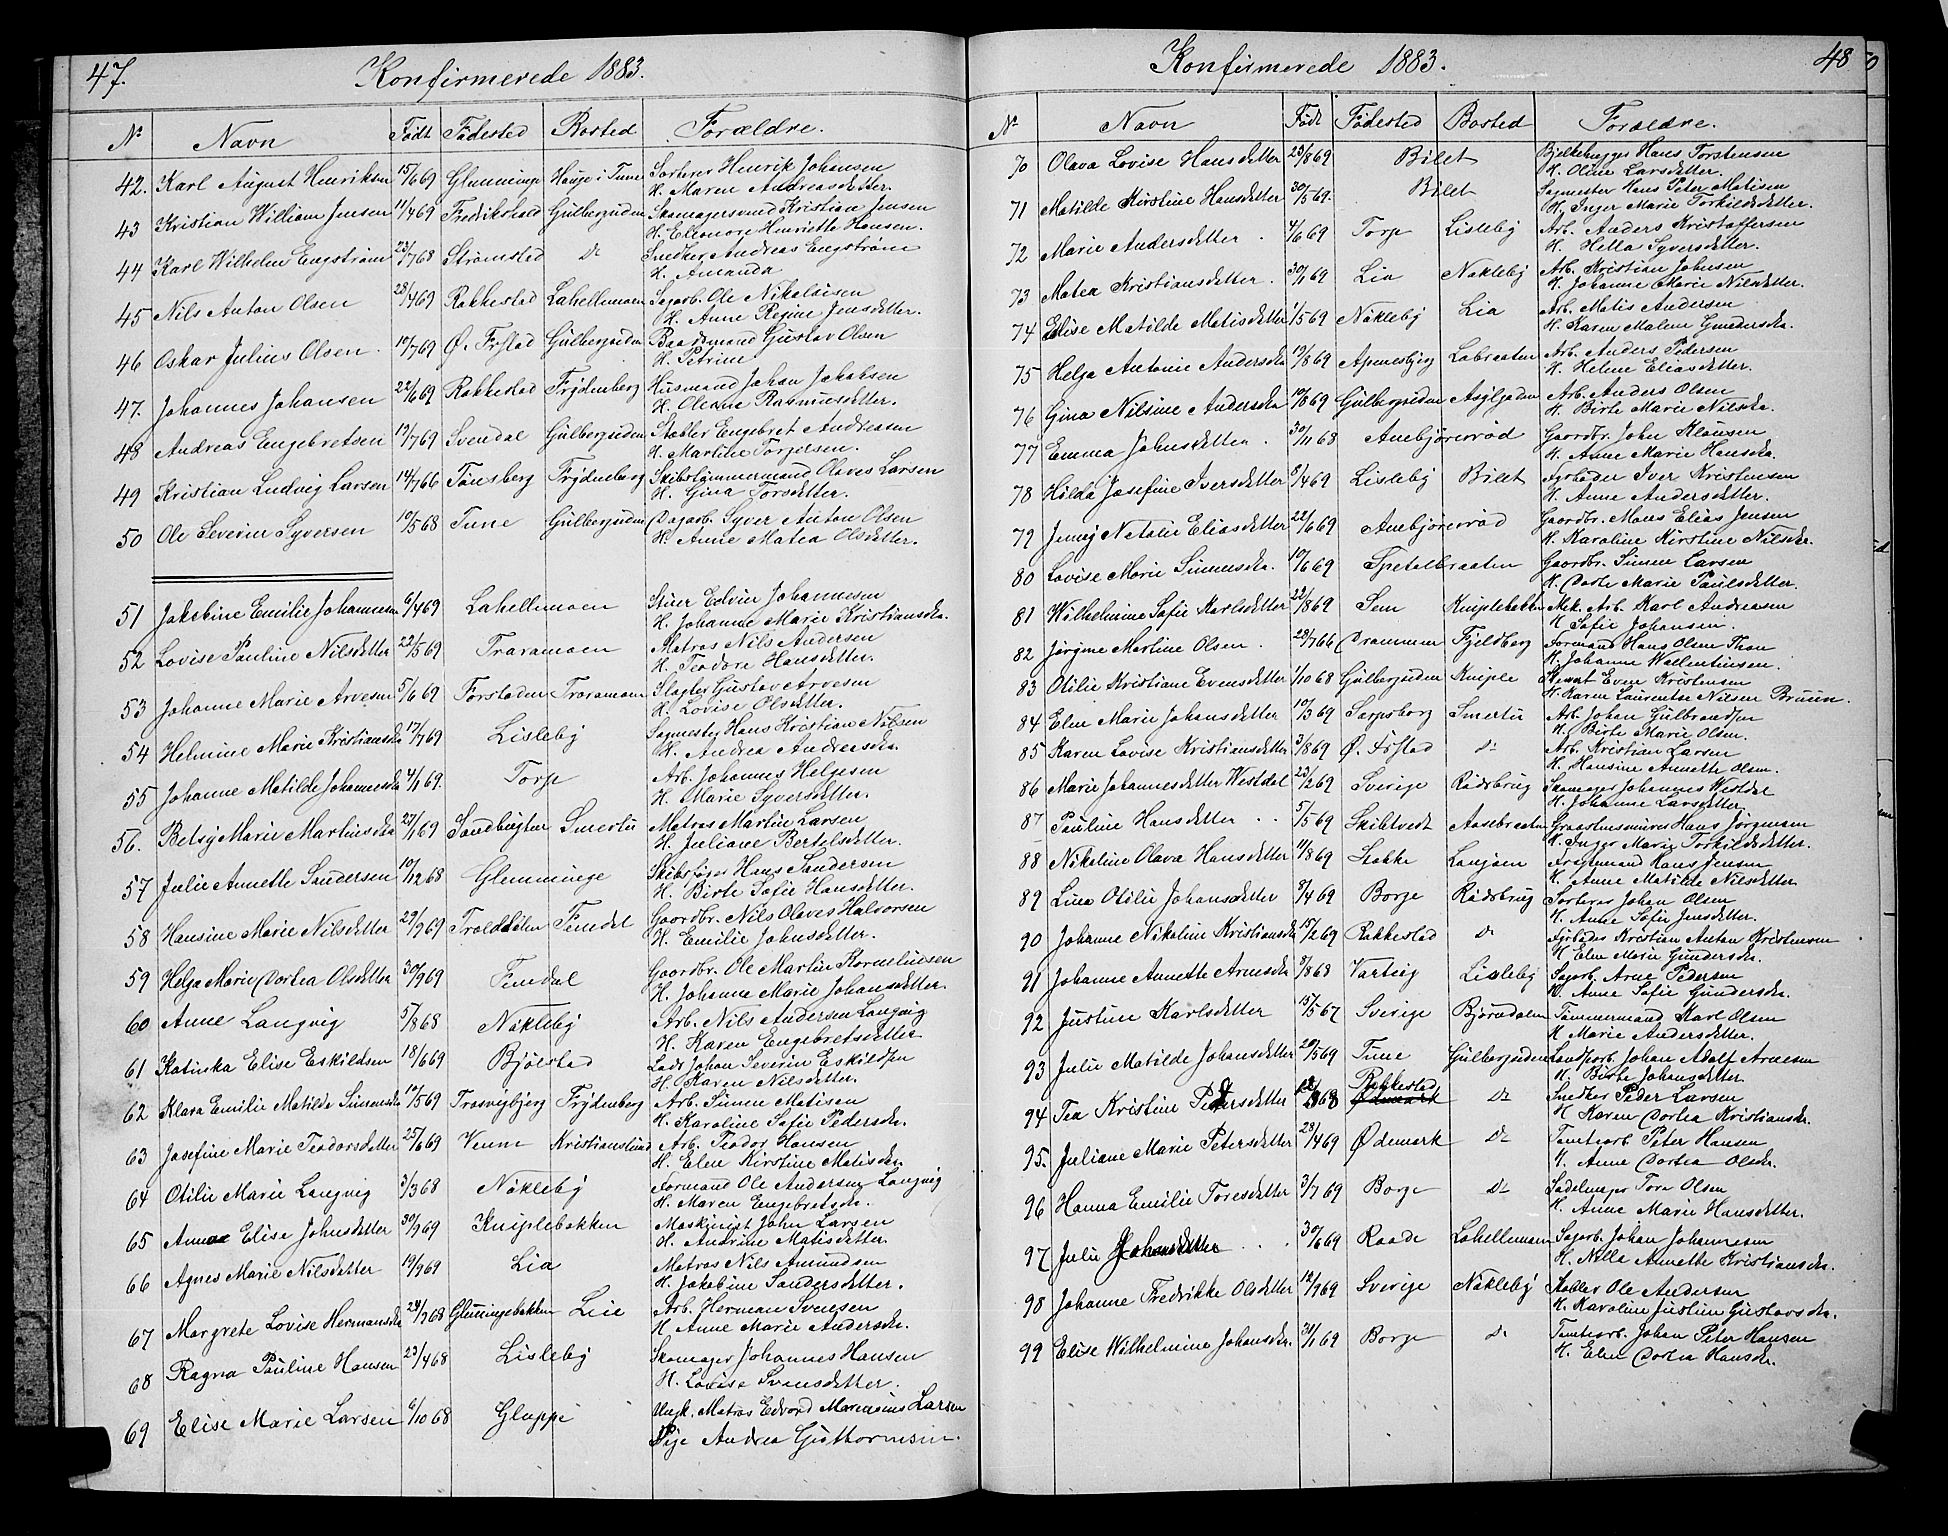 47.
Konfirmerede 1883.
No Navn Født Fødested Bosted Forældre.
42. Karl August Henriksen 15/6 69 Glemminge Hauge i Tune Sorterer Henrik Johansen
H. Maren Andreasdetter.
43 Kristian William Jensen 11/4 69 Fredrikshald Gulbergsuden Skomagersvend Kristian Jensen
H. Elleonore Henriette Hansen.
44 Karl Wilhelm Engstrøm 23/7 68 Strømstad do Snedker Andreas Engstrøm
H. Amanda
45 Nils Anton Olsen 28/4 69 Rakkestad Lahellemoen Sagarb. Ole Nikolaisen
H. Anne Regine Jensdetter.
46 Oskar Julius Olsen. 10/7 69 Ø. Frstad Gulbergsuden Baadsmand Gustav Olsen
H. Petrine
47. Johannes Johansen 22/6 69 Rakkestad Frydenberg Husmand Johan Jakobsen
H. Oleane Rasmusdetter.
48 Andreas Engebretsen 19/7 69 Svendal Gulbergsuden Stabler Engebret Andreasen
H. Martine Torgersen.
49 Kristian Ludvig Larsen 14/7 66 Tønsberg Frydenberg Skibstømmermand Olaves Larsen
H. Gina Torsdetter.
50 Ole Severin Syversen 10/5 68 Tune Gulbergsuden Dagarb. Syver Anton Olsen
H. Anne Matea Olsdetter.
51 Jakobine Emilie Johannesen 6/4 69 Lahellemoen Stuer Edvin Johannesen
H. Johanne Marie Kristiansda.
52 Lovise Pauline Nilsdetter 22/5 69 Traramoen Matros Nils Andersen
H. Teodore Hansdetter.
53 Johanne Marie Arvesen 5/6 69 Forstaden Traramoen Slagter Gustav Arvesen
H. Lovise Olsdetter.
54 Helmine Marie Kristiansda 17/7 69 Lisleby Sagmester Hans Kristian Nilsen
H. Andrea Andreasda.
55 Johanne Matilde Johannesda 4/1 69. Torp Arb. Johannes Helgesen
H. Marie Syversdetter.
56. Betsy Marie Martinsda 27/1 69 Sandbugten Smertu Matros Martin Larsen
H. Juliane Bertelsdetter.
57 Julie Annette Sandersen 10/12 68 Glemminge Hans Sandersen
H. Birte Sofie Hansdetter.
58 Hansine Marie Nilsdetter 29/9 69 Trolddalen Femdal Gaardbr. Nils Olaves Halvorsen
H. Emilie Johnsdetter.
59 Helga Marie Dortea Olsdetter 30/9 69 Femdal Gaardbr. Ole Martin Korneliusen
H. Johanne Marie Johansdetter.
60 Anne Langvig 5/8 68 Nøkleby Arb. Nils Andersen Langvig
H. Karen Engebretsdetter
61 Katinka Elise Eskildsen 18/6 69 Bjølstad Lods Johan Severin Eskildsen
H. Karen Nilsdetter.
62 Klara Emilie Matilde Simensda 19/5 69 Trosvigbjerg Frydenberg Arb. Simen Matisen
H. Karoline Sofie Pedersda.
63 Josefine Marie Teodorsdetter 25/6 69 Venne Kristianslund Arb. Teodor Hansen
H. Elen Kirstine Matisda.
64 Otilie Marie Langvig 3/3 68 Nøkleby Formand Ole Andersen Langvig
H. Maren Engebretsda.
65 Anna Elise Johnsdetter 30/9 69 Kniplebakken Maskinist John Larsen
H. Andrine Matisdetter.
66 Agnes Marie Nilsdetter 19/9 69 Lia Matros Nils Amundsen
H. Jakobine Sandersdetter.
67 Margrete Lovise Hermansda 24/9 68 Glemmingebakken Lie Arb. Herman Svensen
H. Anne Marie Andersda.
68 Ragna Pauline Hansen 23/4 68 Lisleby Skomager Johannes Hansen
H. Lovise Svensdetter.
69 Elise Marie Larsen 6/10 68 Gluppe Ungk. Matros Edvard Marensius Larsen
Pige Andrea Guttormsen.
Konfirmerede 1883.
48
No Navn Født Fødested Bosted Forældre.
70 Olava Lovise Hansdetter 23/8 69 Bilet Bjelkehugger Hans Torstensen
H. Oline Larsdetter.
71 Matilde Kirstine Hansdetter 30/5 69. Bilet Sagmester Hans Peter Matisen
H. Inger Marie Torkildsdetter.
72 Marie Andersdetter. 4/6 69 Torp Lisleby Arb. Anders Kristoffersen
H. Hella Syversdetter.
73 Matea Kristiansdetter. 30/1 69 Lia Nøkleby Arb. Kristian Johnsen
H. Johanne Marie Nilsdetter.
74 Elise Matilde Matisdetter 1/5 69 Nøkleby Lia Arb. Matis Andersen
H. Karen Malene Gundersda.
75 Helga Antonie Andersda 19/8 69 Apenesbjerg Labraaten Arb. Anders Pedersen
H. Helene Eliasdetter.
76 Gina Nilsine Andersda 10/8 69 Gulbergsuden Asylgaden Arb. Anders Olsen
H. Birte Marie Nilsda.
77 Emma Johnsdetter. 30/11 68 Ambjørnrød Gaardbr. John Klausen
H. Anne Marie Hansda.
78 Hilda Josefine Iversdetter 8/4 69 Lisleby Bilet Fyrbøder Iver Kristensen
H. Anne Andersdetter.
79 Jenny Natalie Eliasdetter 22/6 69 Ambjørnrød Gaardbr. Mons Elias Jensen
H. Karoline Kirstine Nilsda.
80 Lovise Marie Simensda. 10/6 69 Spetalbraaten Gaardbr. Simen Larsen
H. Dorte Marie Paulsdetter.
81 Wilhelmine Sofie Karlsdetter 22/8 69 Sem Kniplebakken Mek. Arb. Karl Andreasen
H. Sofie Johansen.
82 Jørgine Martine Olsen. 28/7 66 Drammen Fjeldberg Formand Hans Olsen Thon
H. Johanne Wallentinsen.
83 Otilie Kristiane Evensdetter 1/10 68 Gulbergsuden Kniple Even Kristensen
H. Karen Laurentse Nilsen Bruun.
84 Elen Marie Johansdetter 10/3 69 Sarpsborg Smertu Arb. Johan Gulbrandsen
H. Birte Marie Olsen.
85 Karen Lovise Kristiansdetter 3/8 69 Ø. Frstad do Arb. Kristian Larsen
H. Hansine Annette Olsen.
86 Marie Johannesdetter Westdal 23/2 69 Sverige Rødsbrug Skomager Johannes Westdal
H. Johanne Larsdetter
87 Pauline Hansdetter .. 5/5 69 Skibtvedt Aasebraaten Graastensminer Hans Jørgensen
H. Inger Marie Torkildsdetter.
88 Nikoline Olava Hansdetter 11/8 69 Stokke Langøen Fragtemand Hans Jensen
H. Anne Matilde Nilsdetter.
89 Lina Otilie Johansdetter 8/4 69 Borge Rødsbrug Sorterer Johan Olsen
H. Anne Sofie Jensdetter.
90 Johanne Nikoline Kristiansda 15/2 69 Rakkestad do Fyrbøder Kristian Anton Kristensen
H. Elen Marie Gundersda.
91 Johanne Annette Arnesda 8/8 68 Varteig Lisleby Sagarb. Arne Pedersen
H. Anne Sofie Gundersda.
92 Justine Karlsdetter 15/5 67 Sverige Bjørndalen Tømmermand Karl Olsen
H. Marie Andersdetter.
93 Julie Matilde Johansdetter 20/5 69 Tune Gulbergsuden Johan Adolf Arnesen
H. Birte Johansdetter.
94 Tea Kristine Pedersdetter 68 Rakkestad Ødemark do Snedker Peder Larsen
H. Karen Dortea Kristiansda.
95. Juliane Marie Petersdetter 28/4 69 Ødemark do Tomtearb. Peter Hansen
H. Anne Dortea Olsda.
96 Hanna Emilie Toresdetter 3/7 69 Borge do Sadelmager Tore Olsen
H. Anne Marie Hansdetter.
97 Julie Johansdetter . . 30/6 69 Raade Lahellemoen Sagarb. Johan Johannesen
H. Nille Annette Kristiansda.
98 Johanne Fredrikke Olsdetter 12/9 69 Sverige Nøkleby Stabler Ole Andersen
H. Karoline Justine Gustavsda.
99 Elise Wilhelmine Johansda. 31/1 69 Borge do Tomtearb. Johan Peter Hansen
H. Elen Dortea Hansda.